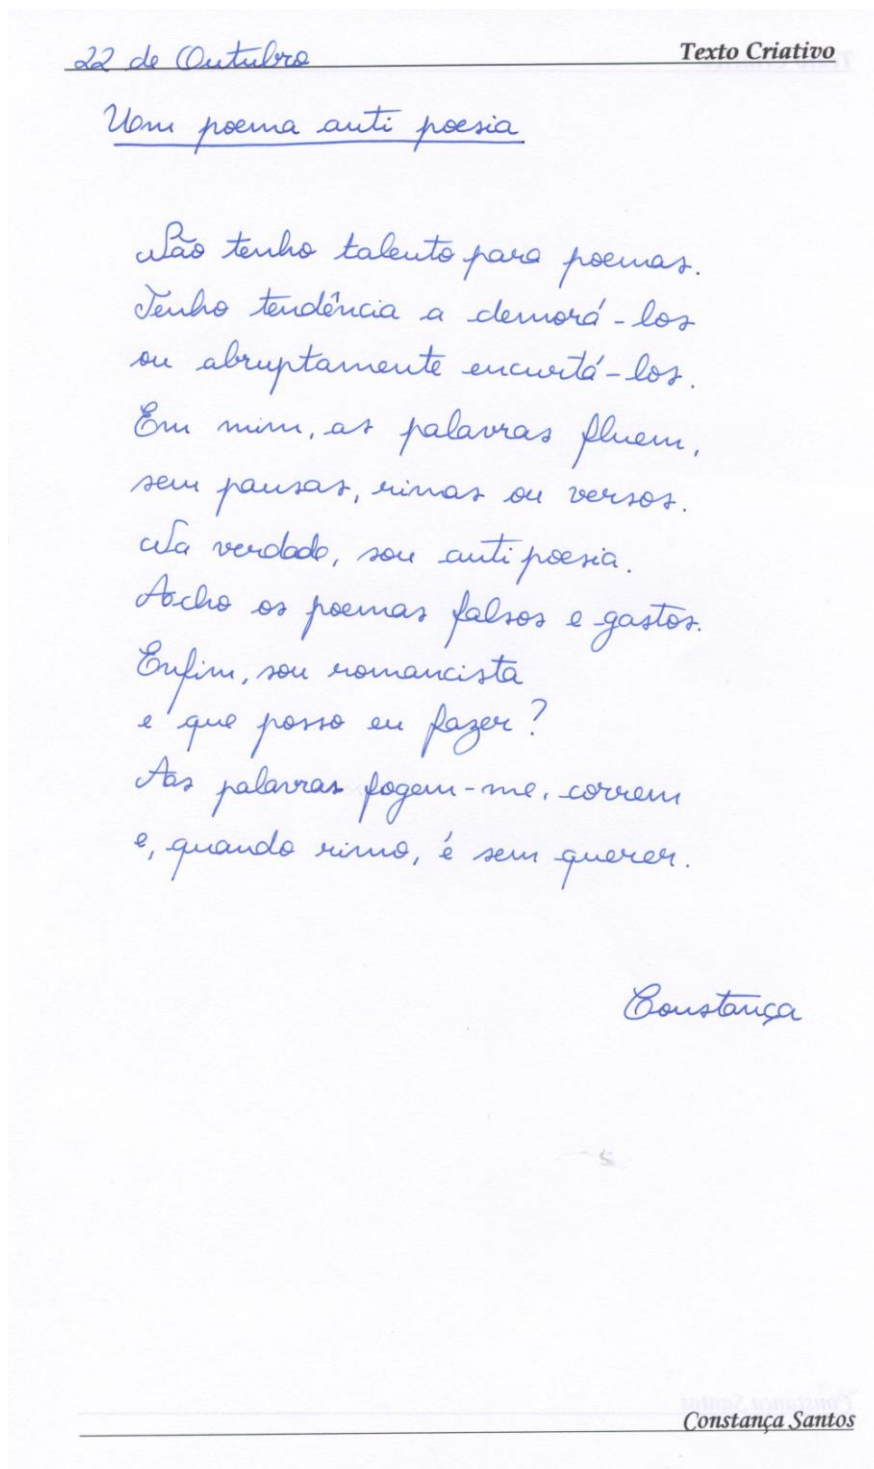 22 de Outubro
Texto Criativo
Um poema anti poesia
Não tenho talento para poemas.
Tenho tendência a demorá-los
ou abruptamente encurtá-los.
Em mim, as palavras fluem,
sem pausas, rimas ou versos.
Na verdade, sou anti poesia.
Acho os poemas falsos e gastos.
Enfim, sou romancista
e que posso eu fazer?
As palavras fogem-me, correm
e, quando rimo, é sem querer.
Constança
Constança Santos